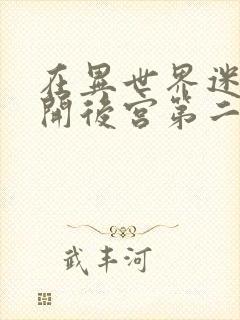 在異世界迷
開後宮第二
武丰河